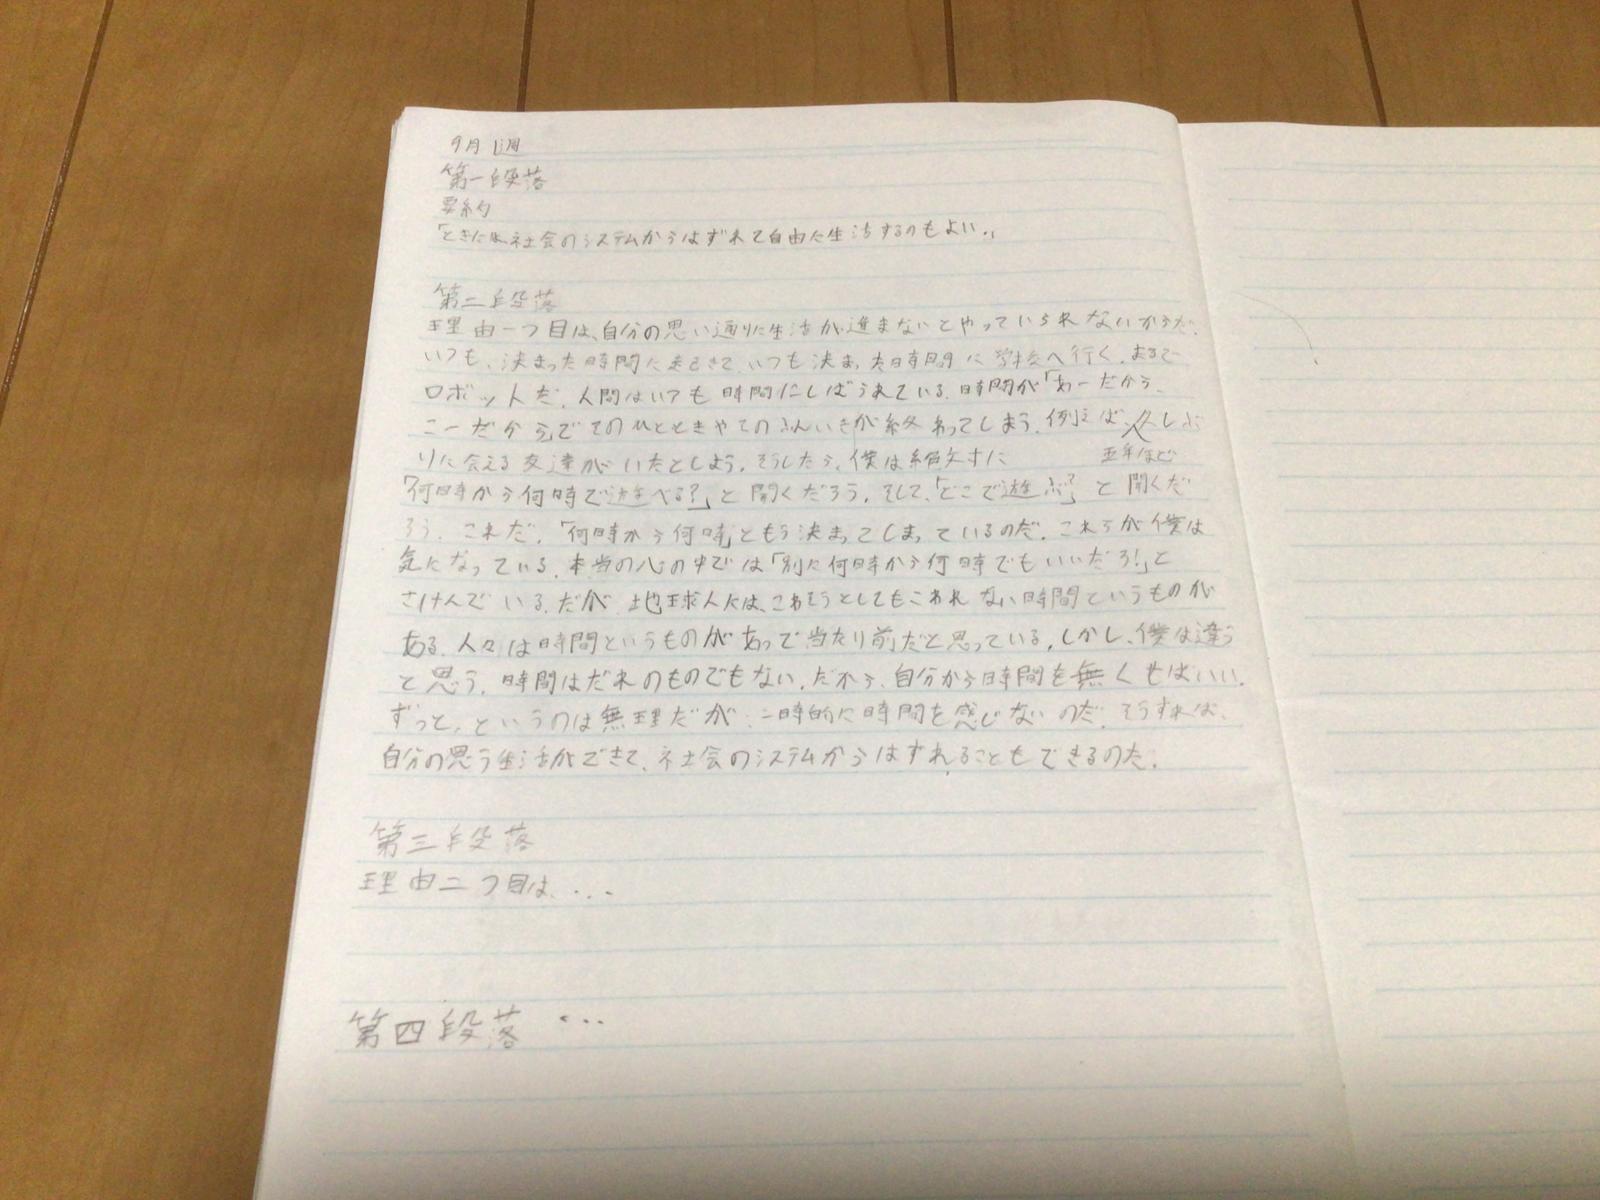 9月1週
第一段落
要約
「ときには社会のシステムからはずれて自由に生活するのもよい。」
第二段落
理由一つ目は、自分の思い通りに生活が進まないとやっていられないからだ。
いつも、決まった時間に起きて、いつも決まった時間に学校へ行く。まるで
ロボットだ。人間はいつも時間にしばられている。時間が「あーだから、
こーだから」でそのひとときやそのふんいきが終わってしまう。例えば、久しぶ
りに会える友達がいたとしよう。そうしたら、僕は絶対に
五年ほど
「何時から何時で遊べる?」と聞くだろう。そして、「どこで遊ぶ?」と聞くだ
ろう。これだ。「何時から何時」ともう決まってしまっているのだ。これらが僕は
気になっている。本当の心の中では「別に何時から何時でもいいだろ!」と
さけんでいる。だが、地球人には、こわそうとしてもこわれない時間というものが
ある。人々は時間というものがあって当たり前だと思っている。しかし、僕は違う
と思う。時間はだれのものでもない。だから、自分から時間を無くせばいい。
ずっと、というのは無理だが、一時的に時間を感じないのだ。そうすれば、
自分の思う生活ができて、社会のシステムからはずれることもできるのだ。
第三段落
理由二つ目は、...
第四段落 ...